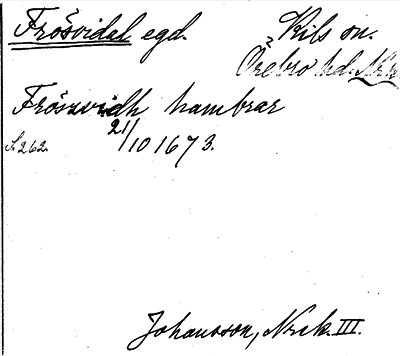 Frösvidal egd. Kils sn.
Örebro hd. Nrk
Frösuvidh hambrar
S. 262. 21/10 1673.
Johansson, Nrck. III.